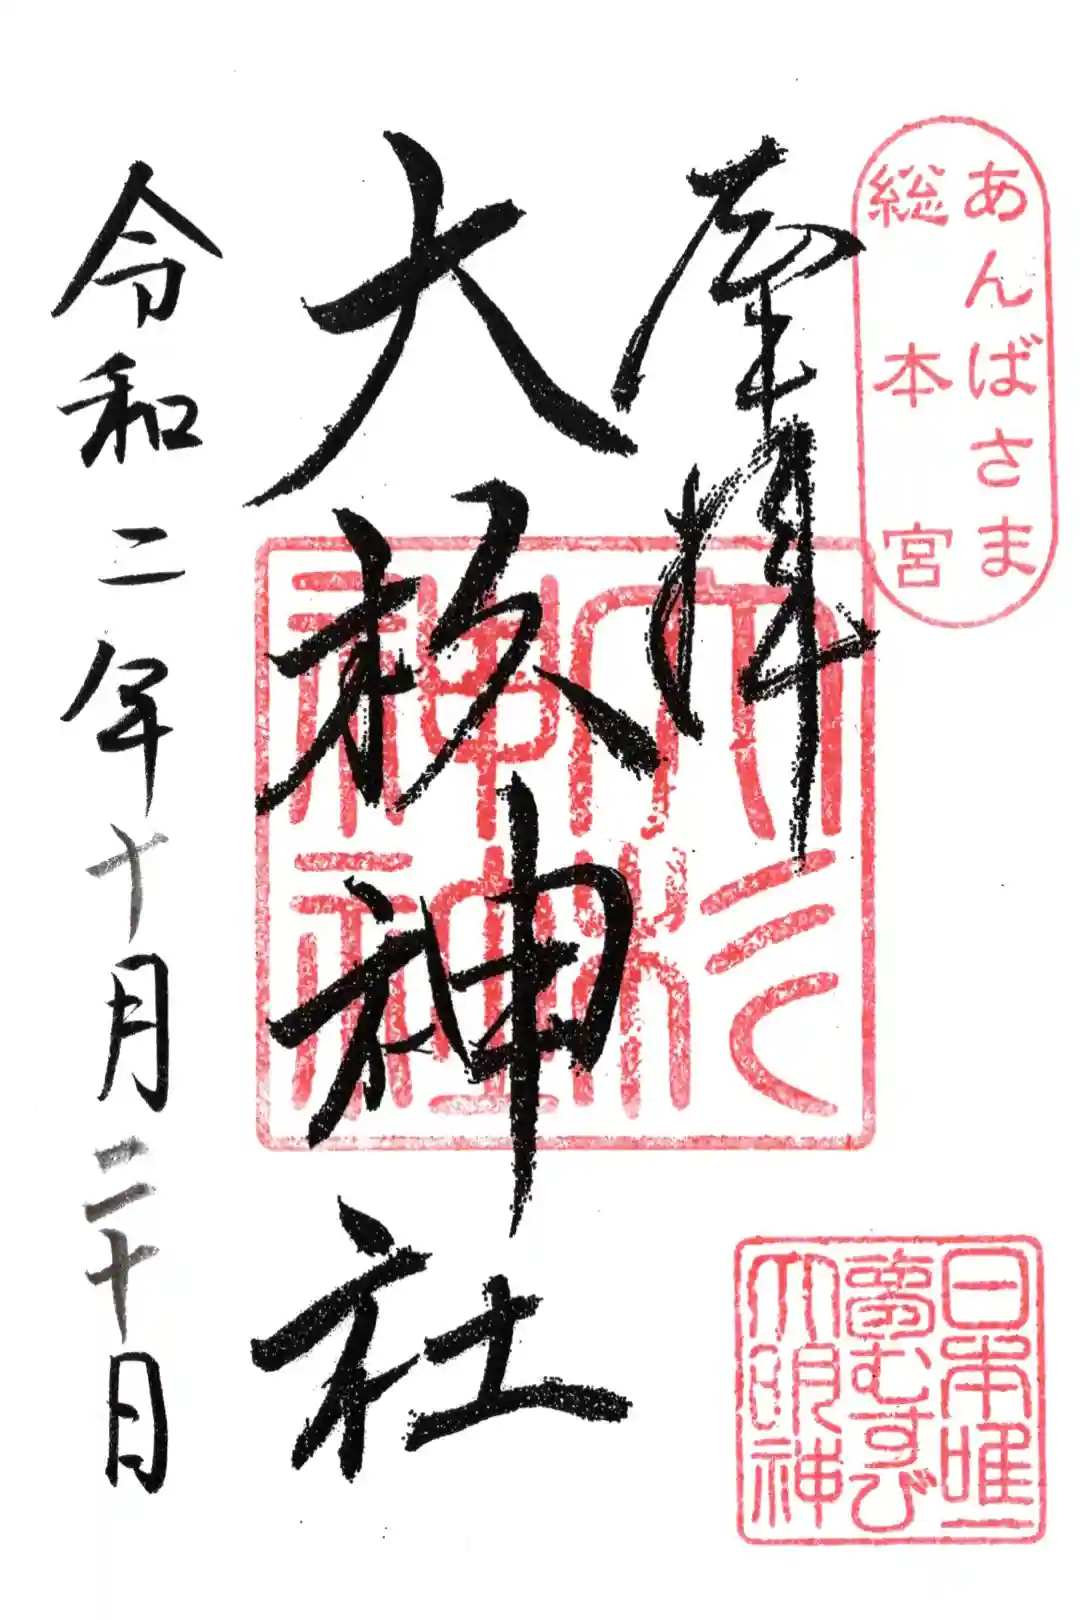 あんばさま
総本宮
奉拝
大杉神社
大杉
神社
令和二年十月二十日
日本唯一
夢むすび
大明神